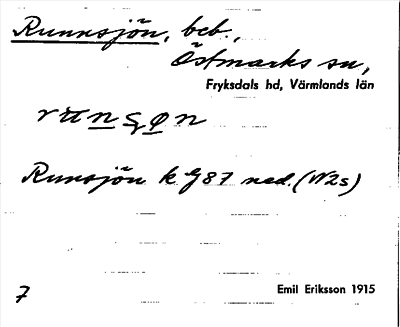 Runnsjön, beb.,
Östmarks sn,
Fryksdals hd, Värmlands län
Runsjön k G87 ned. (N2s)
7 Emil Eriksson 1915